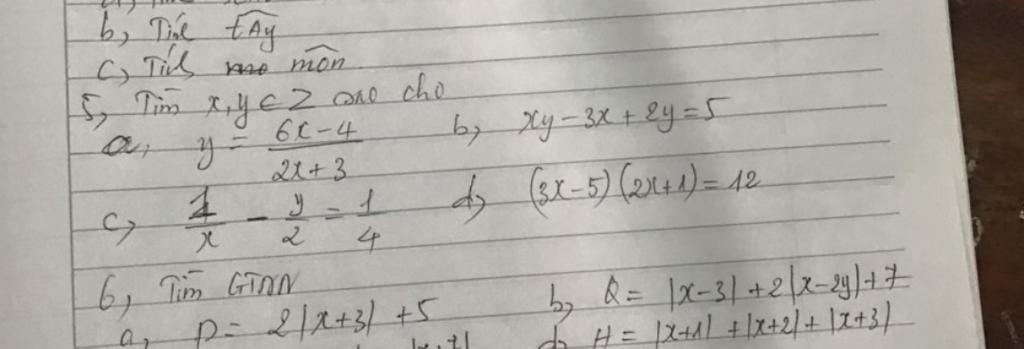 b, Tính tAy
c, Tính mOn
5, Tìm x, y ∈ Z sao cho
a, y = (6x-4)/(2x+3) b, xy - 3x + 2y = 5
c, 1/x - y/2 = 1/4 d, (3x-5)(2x+1) = 12
6, Tìm GTNN
a, P = 2|x+3| + 5 b, Q = |x-3| + 2|x-2y| + 7
d, H = |x+1| + |x+2| + |x+3|